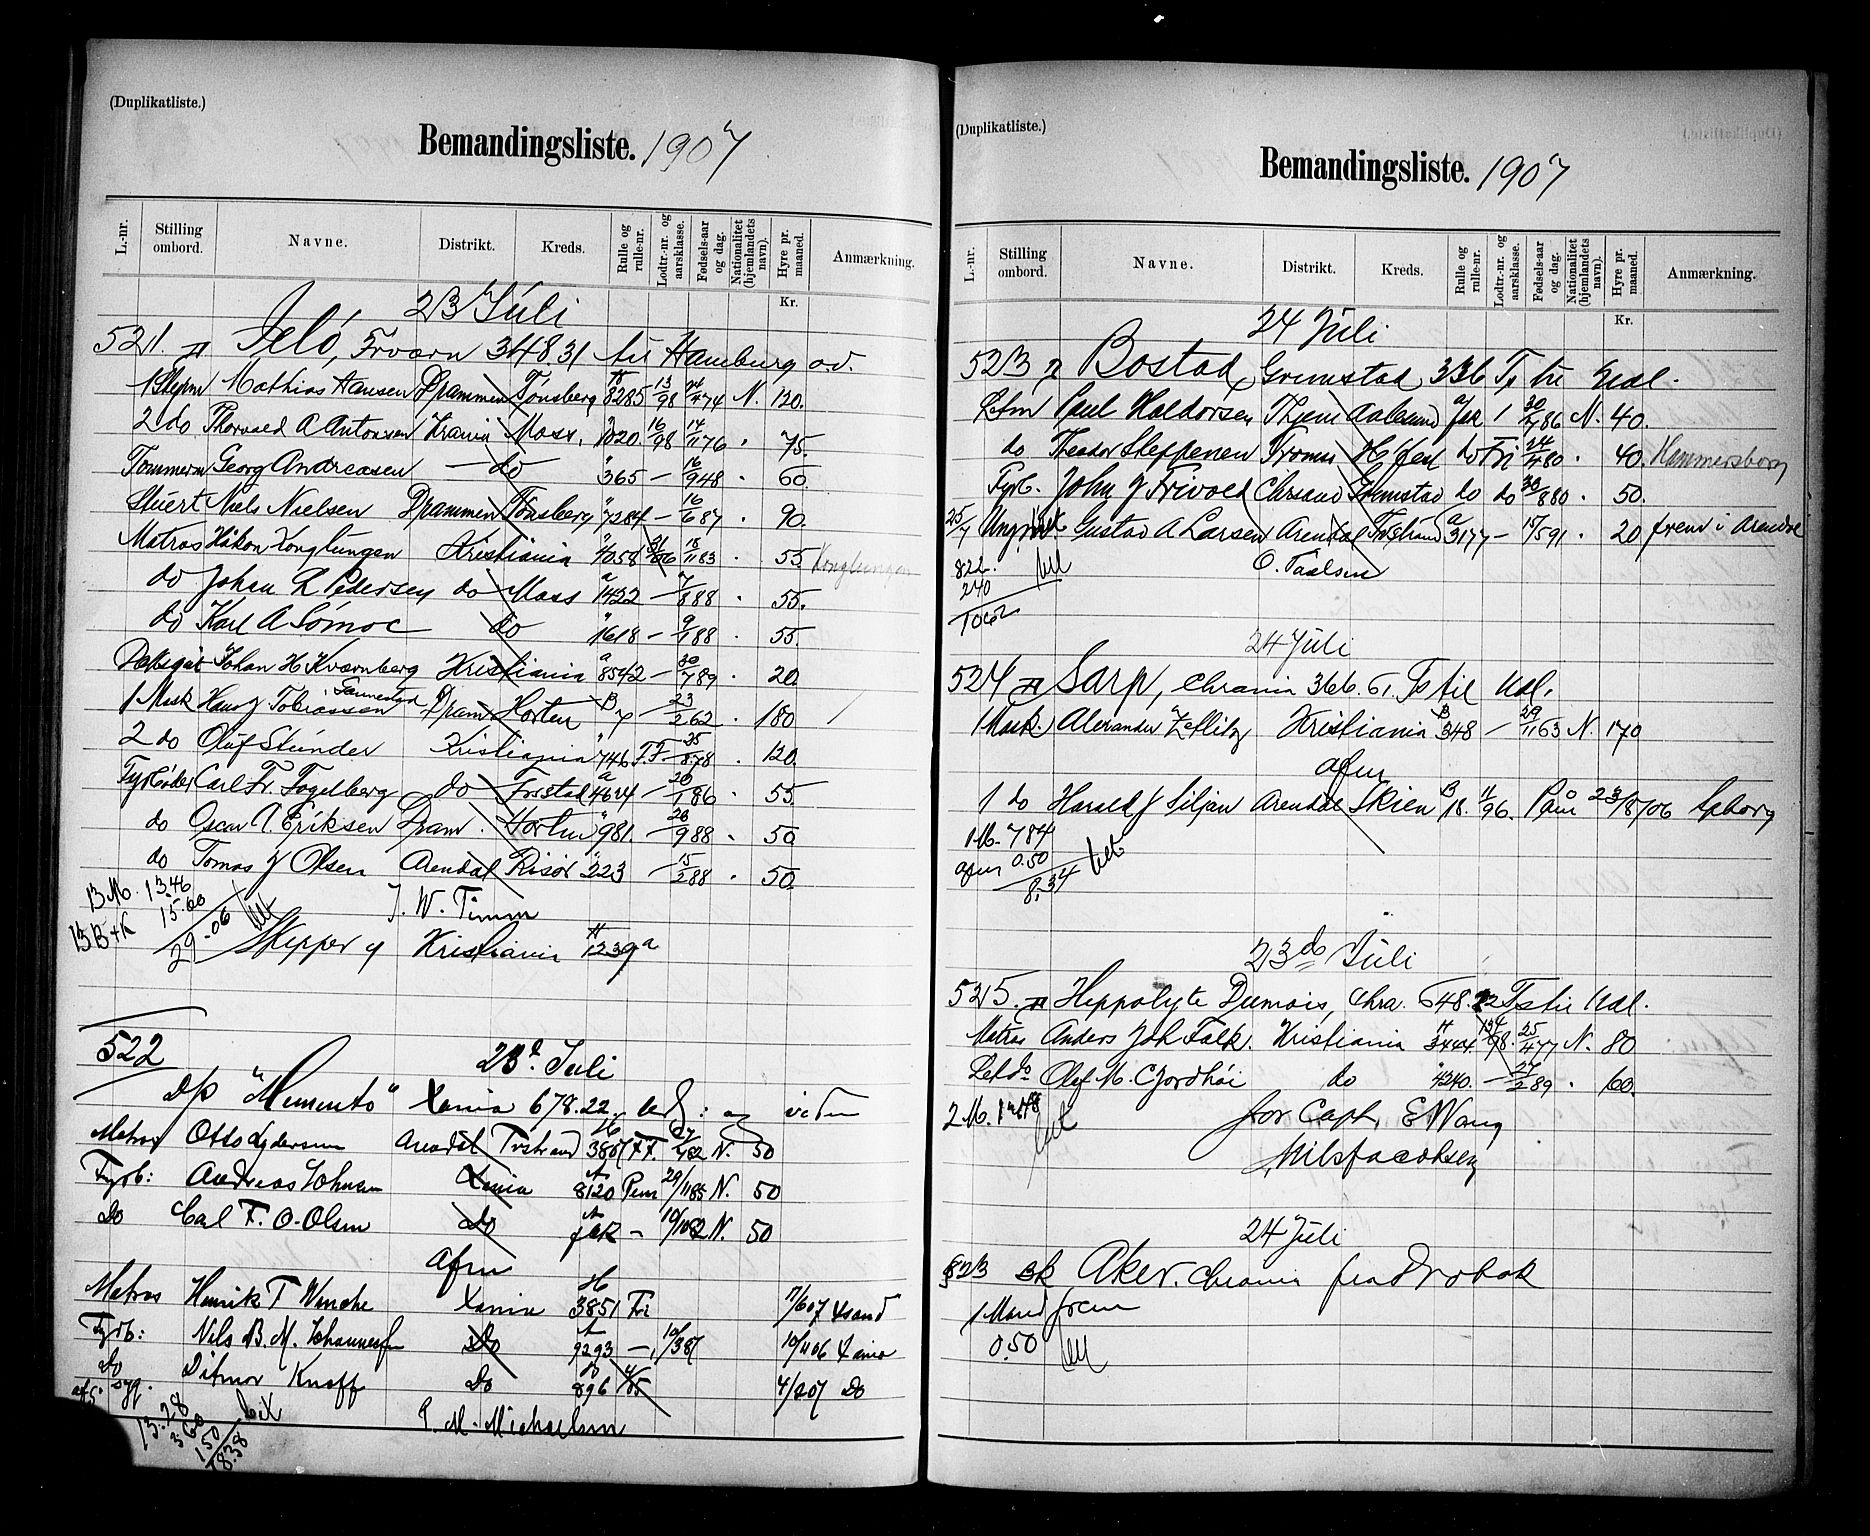 (Duplikatliste.)
Bemandingsliste. 1907
L.-nr. Stilling ombord. Navne. Distrikt. Kreds. Rulle og rulle-nr. Lodtr.-nr. og aarsklasse. Fødsels-aar og dag. Nationalitet (hjemlandets navn). Hyre pr. maaned. Anmærkning.
Kr.
23 Juli
521. Jelö, 348 31 til Hamburg
1 Styrm Mathias Hansen Drammen Tönsberg 8285 13/98 N. 120.
2 do Thorvald A Antonsen Krania Moss. 1020 16/98 14/1176 75.
Tømmerm Georg Andreasen — do 365 — 16/948 60
Stuert Niels Nielsen Drammen Tönsberg 7284 — 16/687 90.
Matros Håkon Konglungen Kristiania 7058 18/1183 55 Konglungen
do Johan L Pedersen do Moss 1422 — 7/888 55.
do Karl A do 1618 — 9/188 55.
Johan H Kvernberg Kristiania a 8542 — 30/789 20.
1 Mask Hans J Tobiassen Dram Horten B 7 — 23/262 180
2 do Oluf Stunder Kristiania 746 F.F 25/878 120.
Fyrböder Carl Fr. Fogelberg do Frsstad a 4624 — 20/186 55
do Oscar A. Eriksen Dram. Horten 981. — 26/988 50
do Tomas J Olsen Arendal Risör 223 — 15/288 50.
13 M. 13.46
15.60
29.06
J. W. Timm
Skipper Kristiania 1239 a
522
23d. Juli
d/s "Memento" Xania 678.22.
Matros Otto Lydersen Arendal Tvistrand F.F. N. 50
Fyrb: Andreas Johnsen Xania 8120 29/1185 N. 50
Do Carl F. O. Olsen Do 10/1082 N. 50
Afm
Matros Henrik F Wenche Xania 3851 Fri 11/607 Xsand
Fyrb: Nils B. M. Johannessen Do 9293 — 10/406 Xania
Do Ditmar Knoff Do 896 4/207 Do
13.28
360
150
18.38
P. M. Michaelsen
(Duplikatliste.)
Bemandingsliste. 1907
L.-nr. Stilling ombord. Navne. Distrikt. Kreds. Rulle og rulle-nr. Lodtr.-nr. og aarsklasse. Fødsels-aar og dag. Nationalitet (hjemlandets navn). Hyre pr. maaned. Anmærkning.
Kr.
24 Juli
523 Bostad, Grimstad 336 til Udl.
Letm Paul Haldorsen Thjem Aalesund 30/786 N. 40.
do Theodor Steffensen Troms do Fri 24/480 40. Hammersborg
Fyrb. John J Trivold Chrsand Grimstad do do 30/880 50.
25/7 Gustav A Larsen Arendal Tvistrand a 3177 — 15/591 20 frem i Arendal
822.
240
1062
O. Paalsen
24 Juli
524 Sarp, Chrania 366. til Udl.
1 Mask. Alexander Zetlitz Kristiania B 348 — 29/1163 N. 170
afm
1 do Harald J Siljan Arendal Skien B 18. 11/96. 23/8/06 Spborg
1 M. 784
afm 0.50
8.34
23de Juli
525. Hippolyte Dumois, Chra. 648.22 til Udl.
Matros Anders Joh Falk. Kristiania 3444 134/98. 25/477 N. 80
Letdo Olaf M. Gjordhöi do 4240. — 27/289 60.
2 M.
for Capt. E Wang
Nils Jacobsen
24 Juli
523 Aker. Chrania fra Dröbak
1 Mand frem
0.50